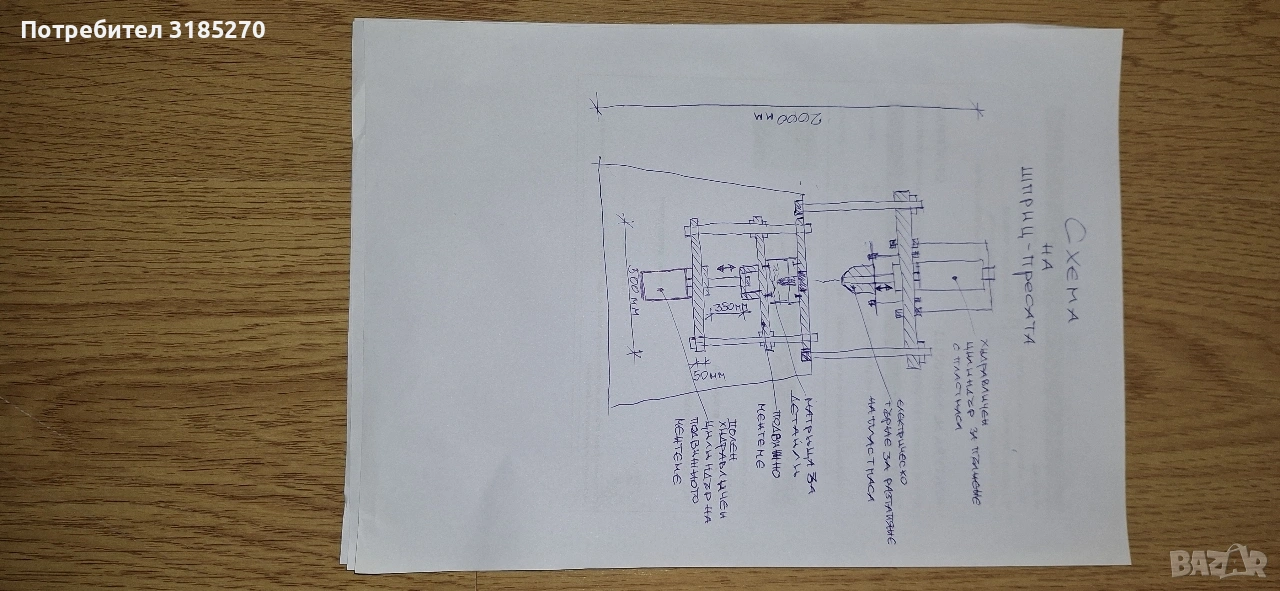 Потребител 3185270
СХЕМА
НА
ШПРИЦ-ПРЕСАТА
2000 мм
ХИДРАВЛИЧЕН
ЦИЛИНДЪР ЗА
С ПЛАСТМАСА
ЕЛЕКТРИЧЕСКО
ТЯРНЕ ЗА РАЗТАПЯНЕ
НА ПЛАСТМАСА
МАТРИЦА ЗА
ДЕТАЙЛИ
ПОДВИЖНО
МЕНГЕМЕ
ДОЛЕН
ХИДРАВЛИЧЕН
ЦИЛИНДЪР НА
ПОДВИЖНОТО
МЕНГЕМЕ
350 м
50 мм
500 мм
BAZAR